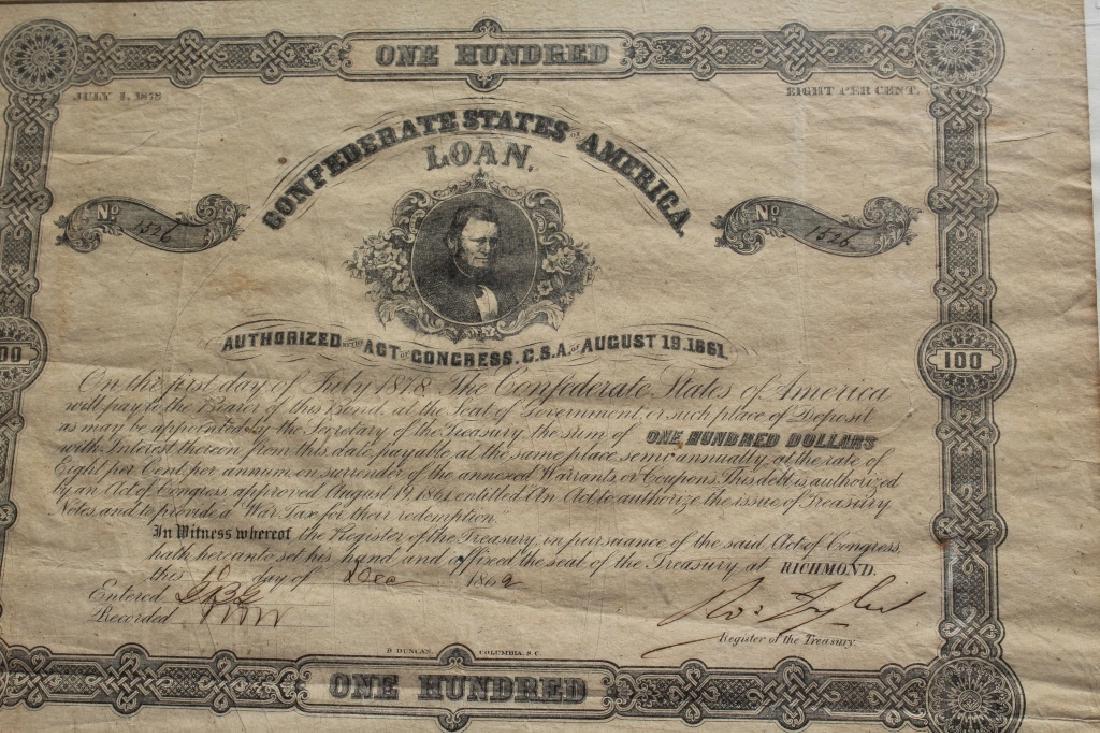 ONE HUNDRED
JULY 1, 1878
EIGHT PER CENT.
CONFEDERATE STATES OF AMERICA
LOAN,
No 1526
No. 1526
AUTHORIZED BY THE ACT OF CONGRESS, C.S.A. OF AUGUST 19, 1861
00
100
On the first day of July 1878 The Confederate States of America
will pay to the Bearer of this Bond, at the Seat of Government, or such place of Deposit
as may be appointed by the Secretary of the Treasury, the sum of ONE HUNDRED DOLLARS
with Interest thereon from this date, payable at the same place, semi annually, at the rate of
Eight per Cent, per annum on surrender of the annexed Warrants or Coupons. This debt is authorized
by an Act of Congress approved August 19, 1861, entitled "An Act to authorize the issue of Treasury
Notes, and to provide a War Tax for their redemption."
In Witness whereof the Register of the Treasury, in pursuance of the said Act of Congress,
hath hereunto set his hand and affixed the seal of the Treasury at RICHMOND.
this 10 day of Dec 1862
Entered
Recorded
Ro. Tyler
Register of the Treasury
B. DUNCAN, COLUMBIA, S.C.
ONE HUNDRED